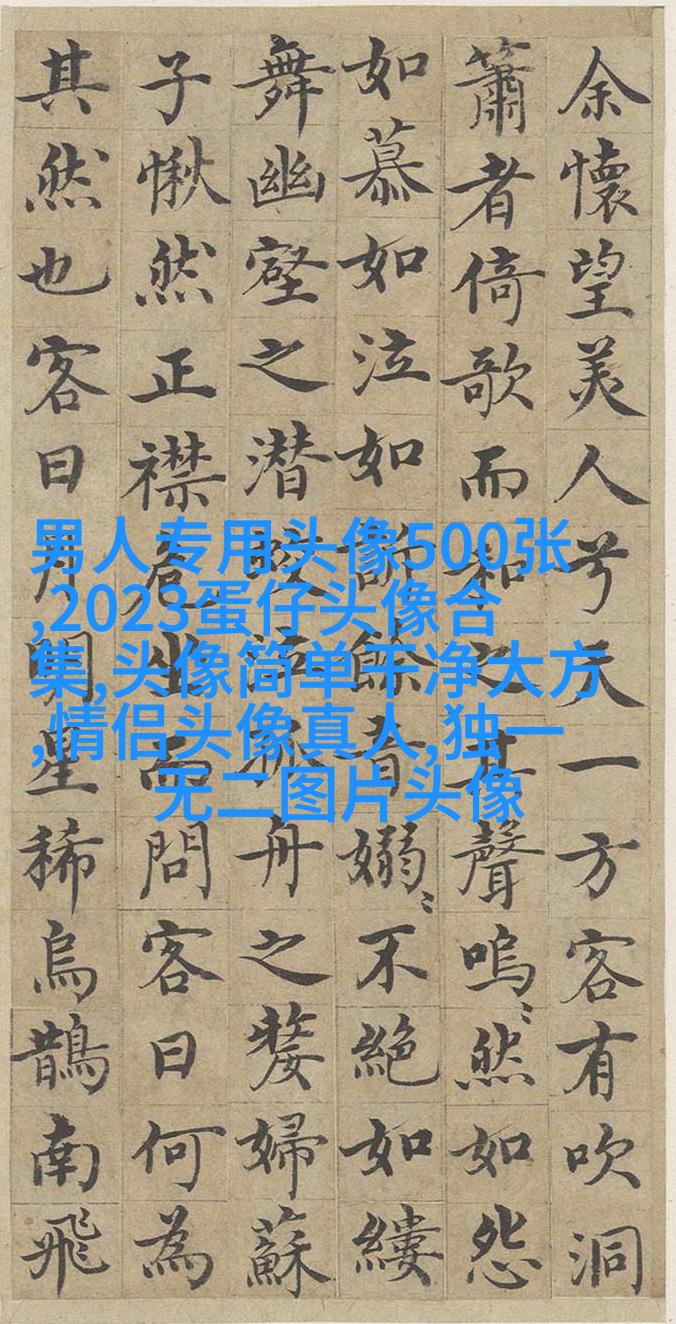 余懷望美人兮天一方客有吹洞
簫者倚歌而和之其聲嗚〻然如怨
如慕如泣如訴餘音嫋〻不絶如縷
舞幽壑之潜蛟泣孤舟之嫠婦蘇
子愀然正襟危坐而問客曰何為
其然也客曰月明星稀烏鵲南飛
男人专用头像500张
,2023蛋仔头像合
集,头像简单干净大方
,情侣头像真人,独一
无二图片头像